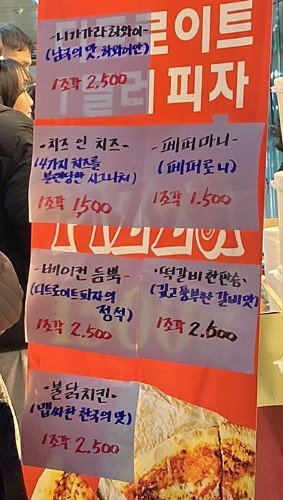 트로이트
피자
·니가가라 하와이·
(남국의 맛, 하와이안)
1조각 2,500
·치즈 인 치즈·
(4가지 치즈를
블렌딩한 시그니처)
1조각 1,500
·페퍼마니·
(페퍼로니)
1조각 1.500
·베이컨 듬뿍·
(디트로이트피자의
정석)
1조각 2.500
·떡갈비 한판승·
(깊고 풍부한 갈비맛)
1조각 2.600
·불닭치킨·
(맵싸한 한국의 맛)
1조각 2.500